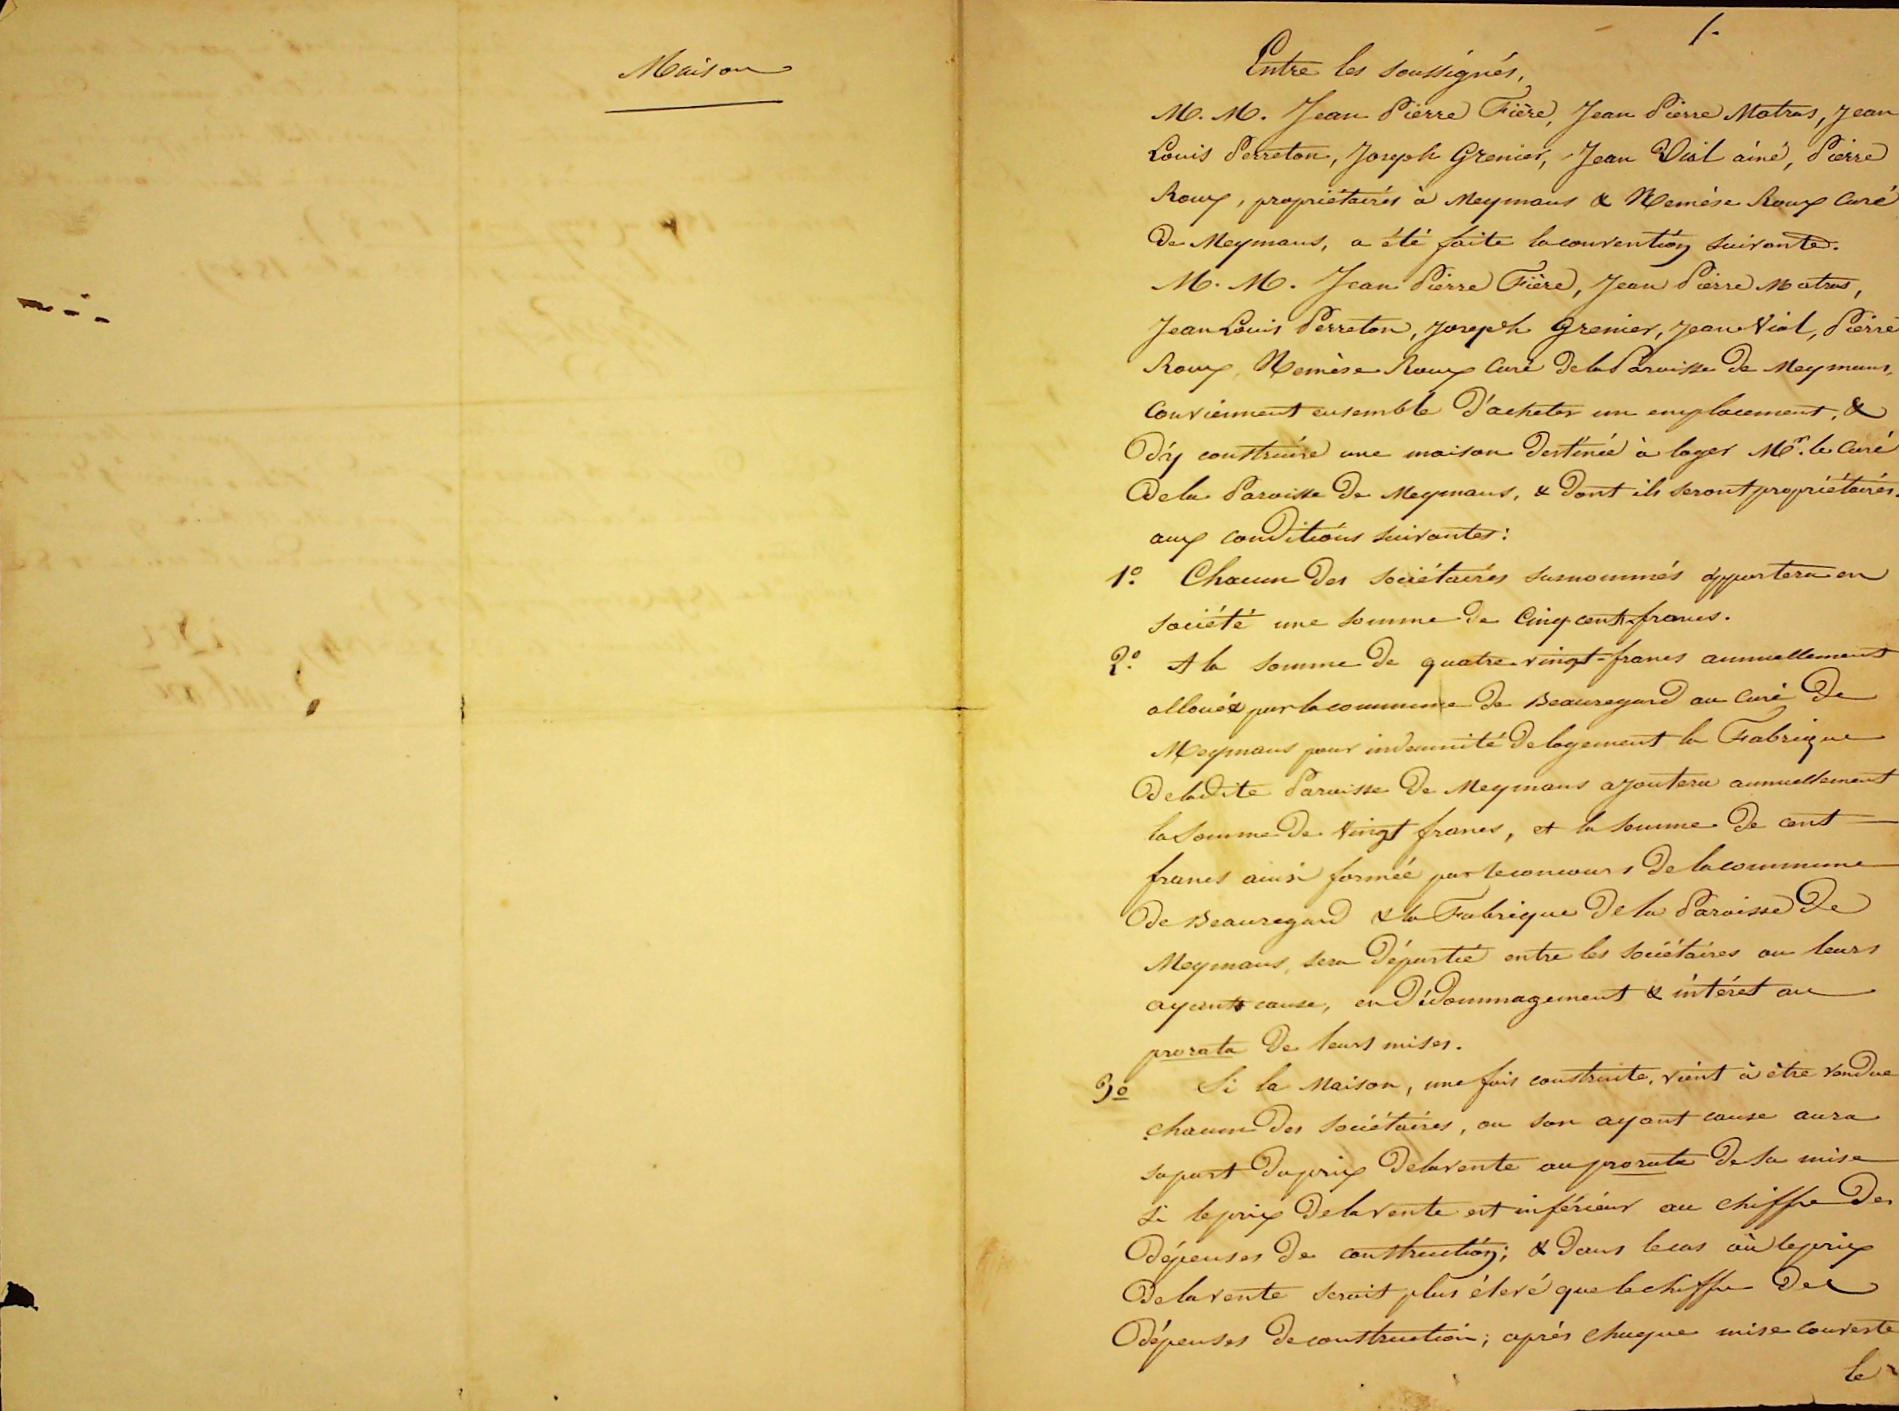 Maison
1.
Entre les soussignés,
M. M. Jean Pierre Fière, Jean Pierre Matras, Jean
Louis Perreton, Joseph Grenier, Jean Vial ainé, Pierre
Roux, propriétaires à Meymans & Nemèse Roux Curé
de Meymans, a été faite la convention suivante.
M. M. Jean Pierre Fière, Jean Pierre Matras,
Jean Louis Perreton, Joseph Grenier, Jean Vial, Pierre
Roux, Nemèse Roux Curé de la Paroisse de Meymans,
conviennent ensemble d'acheter un emplacement, &
d'y construire une maison destinée à loger Mr. le Curé
de la Paroisse de Meymans, & dont ils seront propriétaires.
aux conditions suivantes:
1o. Chacun des sociétaires susnommés apportera en
société une somme de cinq cent francs.
2o. A la somme de quatre-vingt-francs annuellement
alloués par la commune de Beauregard au Curé de
Meymans pour indemnité de logement la Fabrique
de la dite Paroisse de Meymans ajoutera annuellement
la somme de vingt francs, et la somme de cent
francs ainsi formée par le concours de la commune
de Beauregard & la Fabrique de la Paroisse de
Meymans, sera départie entre les sociétaires ou leurs
ayants cause, en dédommagement & intéret au
prorata de leurs mises.
3o Si la Maison, une fois construite, vient à être vendue
chacun des sociétaires, ou son ayant cause aura
sa part du prix de la vente au prorata de sa mise
si le prix de la vente est inférieur au chiffre des
dépenses de construction; & dans le cas où le prix
de la vente serait plus élevé que le chiffre des
dépenses de construction; après chaque mise couverte
le